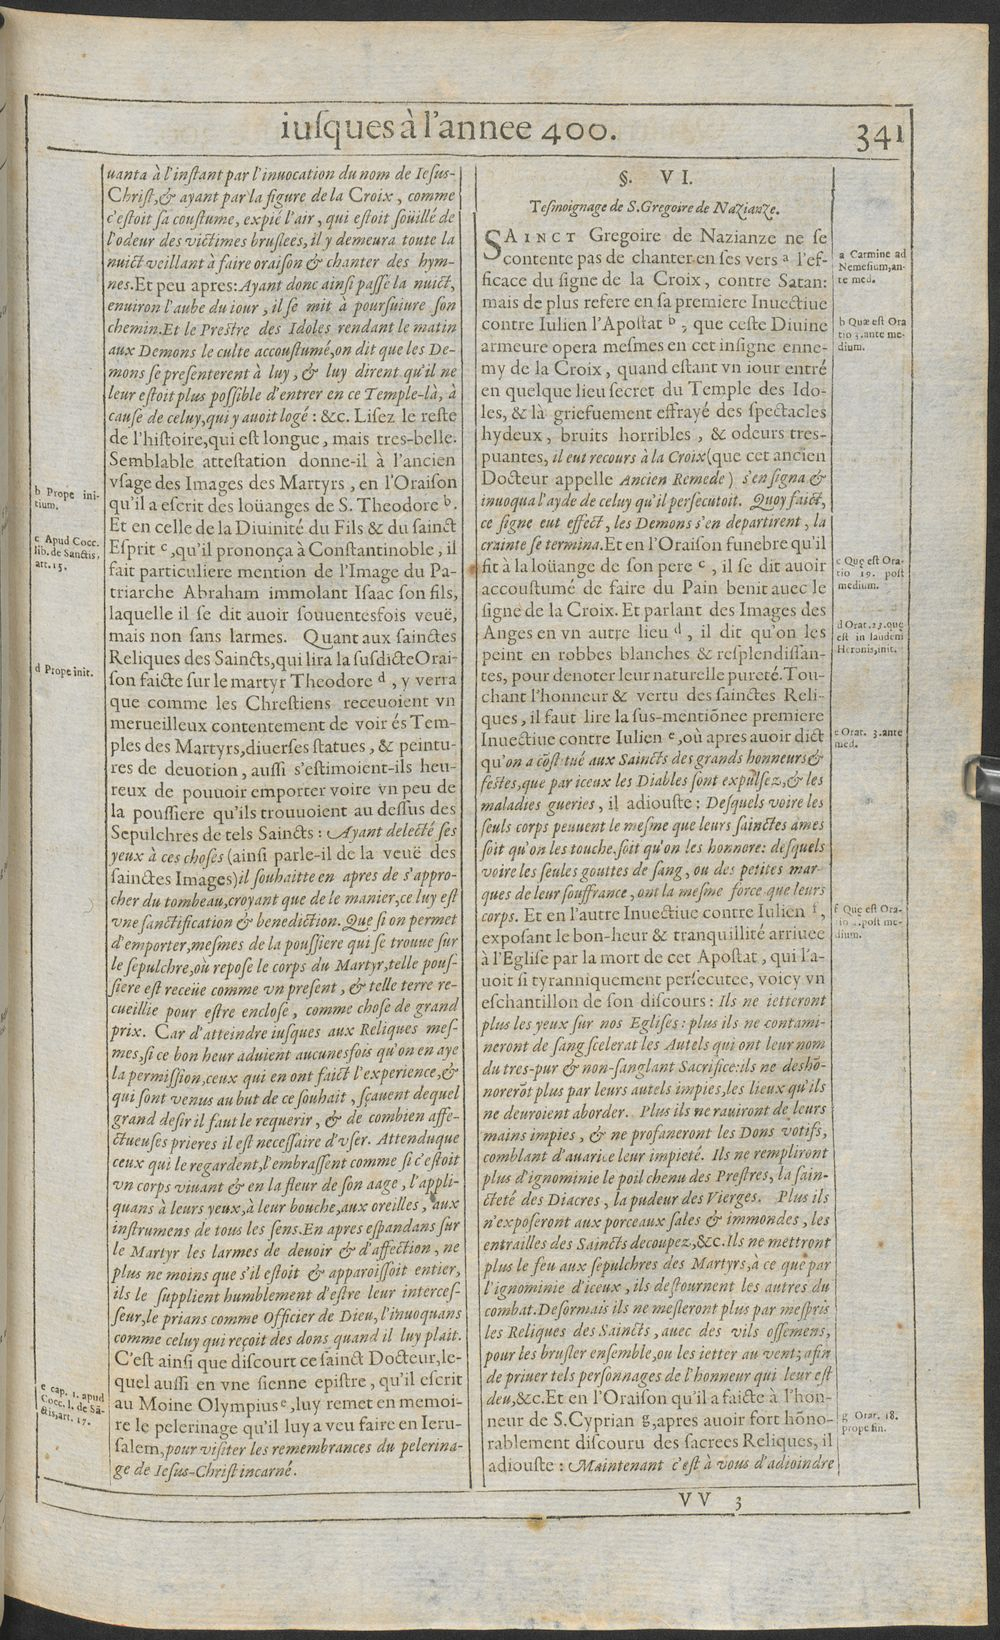 iuſques à l'annee 400.
341
uanta à l'inſtant par l'inuocation du nom de Ieſus-
Chriſt, & ayant par la figure de la Croix, comme
c'eſtoit ſa couſtume, expié l'air, qui eſtoit ſoüillé de
l'odeur des victimes bruſlees, il y demeura toute la
nuict veillant à faire oraiſon & chanter des hym-
nes. Et peu apres: Ayant donc ainſi paſſé la nuict,
enuiron l'aube du iour, il ſe mit à pourſuiure ſon
chemin. Et le Preſtre des Idoles rendant le matin
aux Demons le culte accouſtumé, on dit que les De-
mons ſe preſenterent à luy, & luy dirent qu'il ne
leur eſtoit plus poſſible d'entrer en ce Temple-là, à
cauſe de celuy, qui y auoit logé: &c. Liſez le reſte
de l'hiſtoire, qui eſt longue, mais tres-belle.
Semblable atteſtation donne-il à l'ancien
vſage des Images des Martyrs, en l'Oraiſon
qu'il a eſcrit des loüanges de S. Theodore b.
Et en celle de la Diuinité du Fils & du ſainct
Eſprit c, qu'il prononça à Conſtantinoble, il
fait particuliere mention de l'Image du Pa-
triarche Abraham immolant Iſaac ſon fils,
laquelle il ſe dit auoir ſouuentesfois veuë,
mais non ſans larmes. Quant aux ſainctes
Reliques des Saincts, qui lira la ſuſdicte Orai-
ſon faicte ſur le martyr Theodore d, y verra
que comme les Chreſtiens receuoient vn
merueilleux contentement de voir és Tem-
ples des Martyrs, diuerſes ſtatues, & peintu-
res de deuotion, auſſi s'eſtimoient-ils heu-
reux de pouuoir emporter voire vn peu de
la pouſſiere qu'ils trouuoient au deſſus des
Sepulchres de tels Saincts: Ayant delecté ſes
yeux à ces choſes (ainſi parle-il de la veuë des
ſainctes Images) il ſouhaitte en apres de s'appro-
cher du tombeau, croyant que de le manier, ce luy eſt
vne ſanctification & benediction. Que ſi on permet
d'emporter, meſmes de la pouſſiere qui ſe trouue ſur
le ſepulchre, où repoſe le corps du Martyr, telle pouſ-
ſiere eſt receüe comme vn preſent, & telle terre re-
cueillie pour eſtre encloſe, comme choſe de grand
prix. Car d'atteindre iuſques aux Reliques meſ-
mes, ſi ce bon heur aduient aucunesfois qu'on en aye
la permiſſion, ceux qui en ont faict l'experience, &
qui ſont venus au but de ce ſouhait, ſçauent de quel
grand deſir il faut le requerir, & de combien affe-
ctueuſes prieres il eſt neceſſaire d'vſer. Attendu que
ceux qui le regardent, l'embraſſent comme ſi c'eſtoit
vn corps viuant & en la fleur de ſon aage, l'appli-
quans à leurs yeux, à leur bouche, aux oreilles, aux
inſtrumens de tous les ſens. En apres eſpandans ſur
le Martyr les larmes de deuoir & d'affection, ne
plus ne moins que s'il eſtoit & apparoiſſoit entier,
ils le ſupplient humblement d'eſtre leur interceſ-
ſeur, le prians comme Officier de Dieu, l'inuoquans
comme celuy qui reçoit des dons quand il luy plait.
C'eſt ainſi que diſcourt ce ſainct Docteur, le-
quel auſſi en vne ſienne epiſtre, qu'il eſcrit
au Moine Olympius e, luy remet en memoi-
re le pelerinage qu'il luy a veu faire en Ieru-
ſalem, pour viſiter les remembrances du pelerina-
ge de Ieſus-Chriſt incarné.
b Prope ini-
tium.
c Apud Cocc.
lib. de Sanctis,
art. 15.
d Prope init.
e cap. 1. apud
Cocc. l. de Sã-
ctis, art. 17.
§. VI.
Teſmoignage de S. Gregoire de Nazianze.
SAINCT Gregoire de Nazianze ne ſe
contente pas de chanter en ſes vers a l'ef-
ficace du ſigne de la Croix, contre Satan:
mais de plus refere en ſa premiere Inuectiue
contre Iulien l'Apoſtat b, que ceſte Diuine
armeure opera meſmes en cet inſigne enne-
my de la Croix, quand eſtant vn iour entré
en quelque lieu ſecret du Temple des Ido-
les, & là griefuement effrayé des ſpectacles
hydeux, bruits horribles, & odeurs tres-
puantes, il eut recours à la Croix (que cet ancien
Docteur appelle Ancien Remede) s'en ſigna &
inuoqua l'ayde de celuy qu'il perſecutoit. Quoy faict,
ce ſigne eut effect, les Demons s'en departirent, la
crainte ſe termina. Et en l'Oraiſon funebre qu'il
fit à la loüange de ſon pere c, il ſe dit auoir
accouſtumé de faire du Pain benit auec le
ſigne de la Croix. Et parlant des Images des
Anges en vn autre lieu d, il dit qu'on les
peint en robbes blanches & reſplendiſſan-
tes, pour denoter leur naturelle pureté. Tou-
chant l'honneur & vertu des ſainctes Reli-
ques, il faut lire la ſus-mentiõnee premiere
Inuectiue contre Iulien e, où apres auoir dict
qu'on a cõſtitué aux Saincts des grands honneurs &
feſtes, que par iceux les Diables ſont expulſez, & les
maladies gueries, il adiouſte: Deſquels voire les
ſeuls corps peuuent le meſme que leurs ſainctes ames
ſoit qu'on les touche, ſoit qu'on les honnore: deſquels
voire les ſeules gouttes de ſang, ou des petites mar
ques de leur ſouffrance, ont la meſme force que leurs
corps. Et en l'autre Inuectiue contre Iulien f,
expoſant le bon-heur & tranquillité arriuee
à l'Egliſe par la mort de cet Apoſtat, qui l'a-
uoit ſi tyranniquement perſecutee, voicy vn
eſchantillon de ſon diſcours: Ils ne ietteront
plus les yeux ſur nos Egliſes: plus ils ne contami-
neront de ſang ſcelerat les Autels qui ont leur nom
du tres-pur & non-ſanglant Sacrifice: ils ne deshõ-
norerõt plus par leurs autels impies, les lieux qu'ils
ne deuroient aborder. Plus ils ne rauiront de leurs
mains impies, & ne profaneront les Dons votifs,
comblant d'auarice leur impieté. Ils ne rempliront
plus d'ignominie le poil chenu des Preſtres, la ſain-
cteté des Diacres, la pudeur des Vierges. Plus ils
n'expoſeront aux porceaux ſales & immondes, les
entrailles des Saincts decoupez, &c. Ils ne mettront
plus le feu aux ſepulchres des Martyrs, à ce que par
l'ignominie d'iceux, ils deſtournent les autres du
combat. Deſormais ils ne meſleront plus par meſpris
les Reliques des Saincts, auec des vils oſſemens,
pour les bruſler enſemble, ou les ietter au vent; afin
de priuer tels perſonnages de l'honneur qui leur eſt
deu, &c. Et en l'Oraiſon qu'il a faicte à l'hon-
neur de S. Cyprian g, apres auoir fort hõno-
rablement diſcouru des ſacrees Reliques, il
adiouſte: Maintenant c'eſt à vous d'adioindre
a Carmine ad
Nemeſium, an-
te med.
b Quæ eſt Ora
tio 3. ante me-
dium.
c Quę eſt Ora-
tio 19. poſt
medium.
d Orat. 23. quę
eſt in laudem
Heronis, init.
e Orat. 3. ante
med.
f Quę eſt Ora-
tio 4. poſt me-
dium.
g Orat. 18.
prope fin.
VV 3